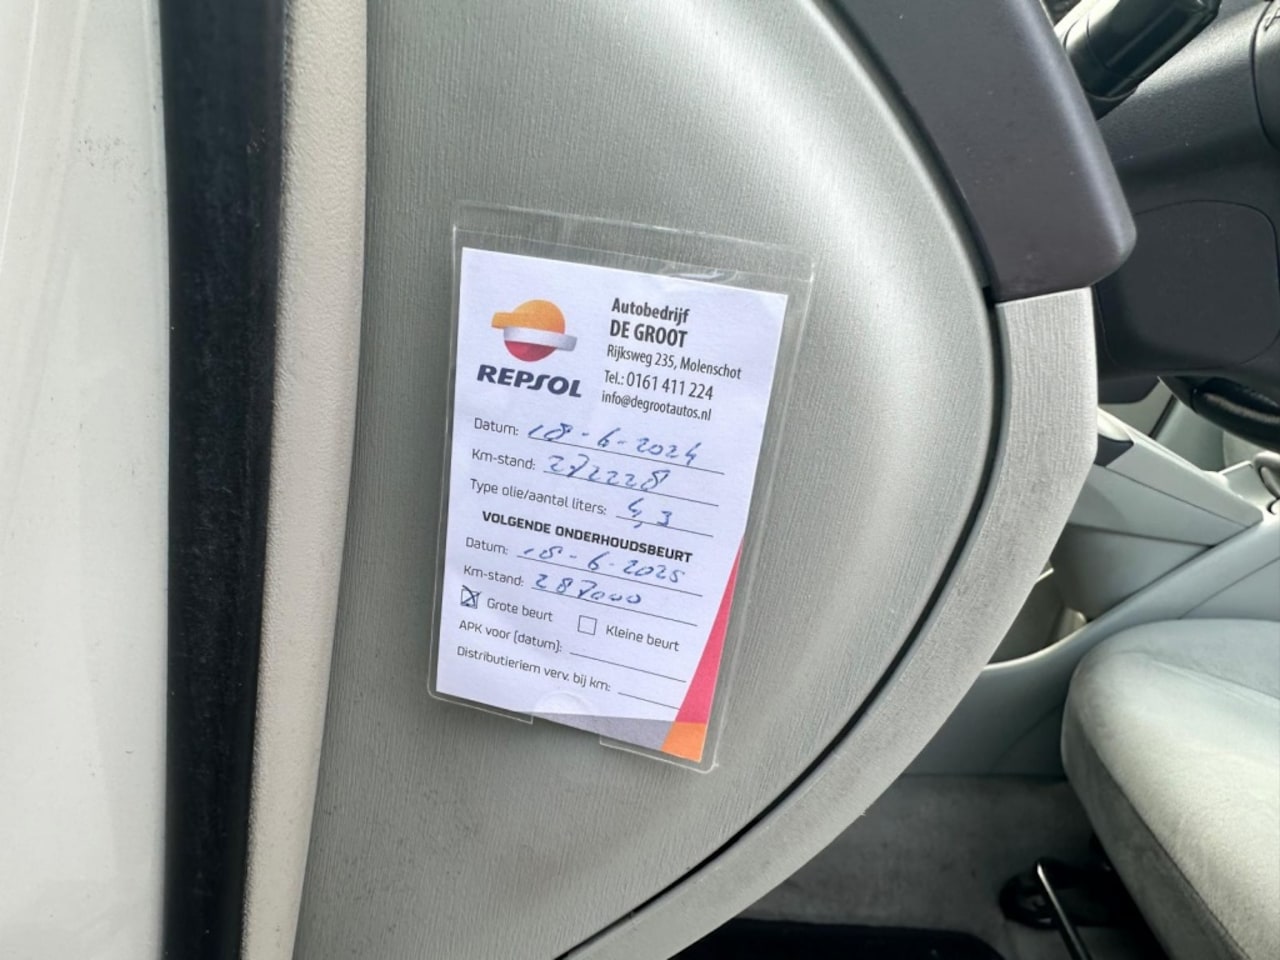 REPSOL
Autobedrijf
DE GROOT
Rijksweg 235, Molenschot
Tel.: 0161 411 224
info@degrootautos.nl
Datum: 18-6-2024
Km-stand: 272228
Type olie/aantal liters: 4,3
VOLGENDE ONDERHOUDSBEURT
Datum: 18-6-2025
Km-stand: 287000
Grote beurt Kleine beurt
APK voor (datum):
Distributieriem verv. bij km: